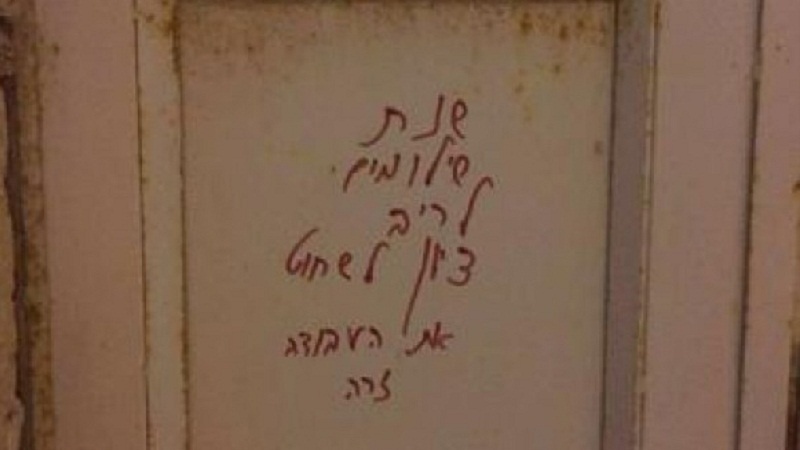 שנת
שילומים
לריב
ציון לשחוט
את העבודה
זרה